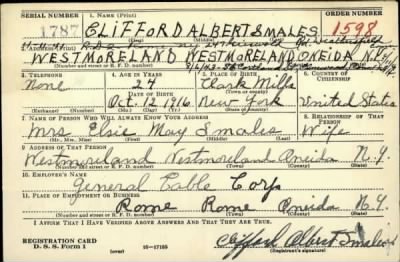 SERIAL NUMBER 1. NAME (Print) ORDER NUMBER
1787 CLIFFORD ALBERT SMALES 1598
(First) (Middle) (Last)
2. ADDRESS (Print)
WESTMORELAND WESTMORELAND ONEIDA N.Y.
(Number and street or R. F. D. number) (Town) (County) (State)
3. TELEPHONE 4. AGE IN YEARS 5. PLACE OF BIRTH 6. COUNTRY OF CITIZENSHIP
None 24 Clark Mills
DATE OF BIRTH (Town or county)
Oct. 12 1916 New York United States
(Exchange) (Number) (Mo.) (Day) (Yr.) (State or country)
7. NAME OF PERSON WHO WILL ALWAYS KNOW YOUR ADDRESS 8. RELATIONSHIP OF THAT PERSON
Mrs. Elsie May Smales Wife
(Mr., Mrs., Miss) (First) (Middle) (Last)
9. ADDRESS OF THAT PERSON
Westmoreland Westmoreland Oneida N.Y.
(Number and street or R. F. D. number) (Town) (County) (State)
10. EMPLOYER'S NAME
General Cable Corp
11. PLACE OF EMPLOYMENT OR BUSINESS
Rome Rome Oneida N.Y.
(Number and street or R. F. D. number) (Town) (County) (State)
I AFFIRM THAT I HAVE VERIFIED ABOVE ANSWERS AND THAT THEY ARE TRUE.
REGISTRATION CARD
D. S. S. Form 1 (over) 16—17105 Clifford Albert Smales
(Registrant's signature)